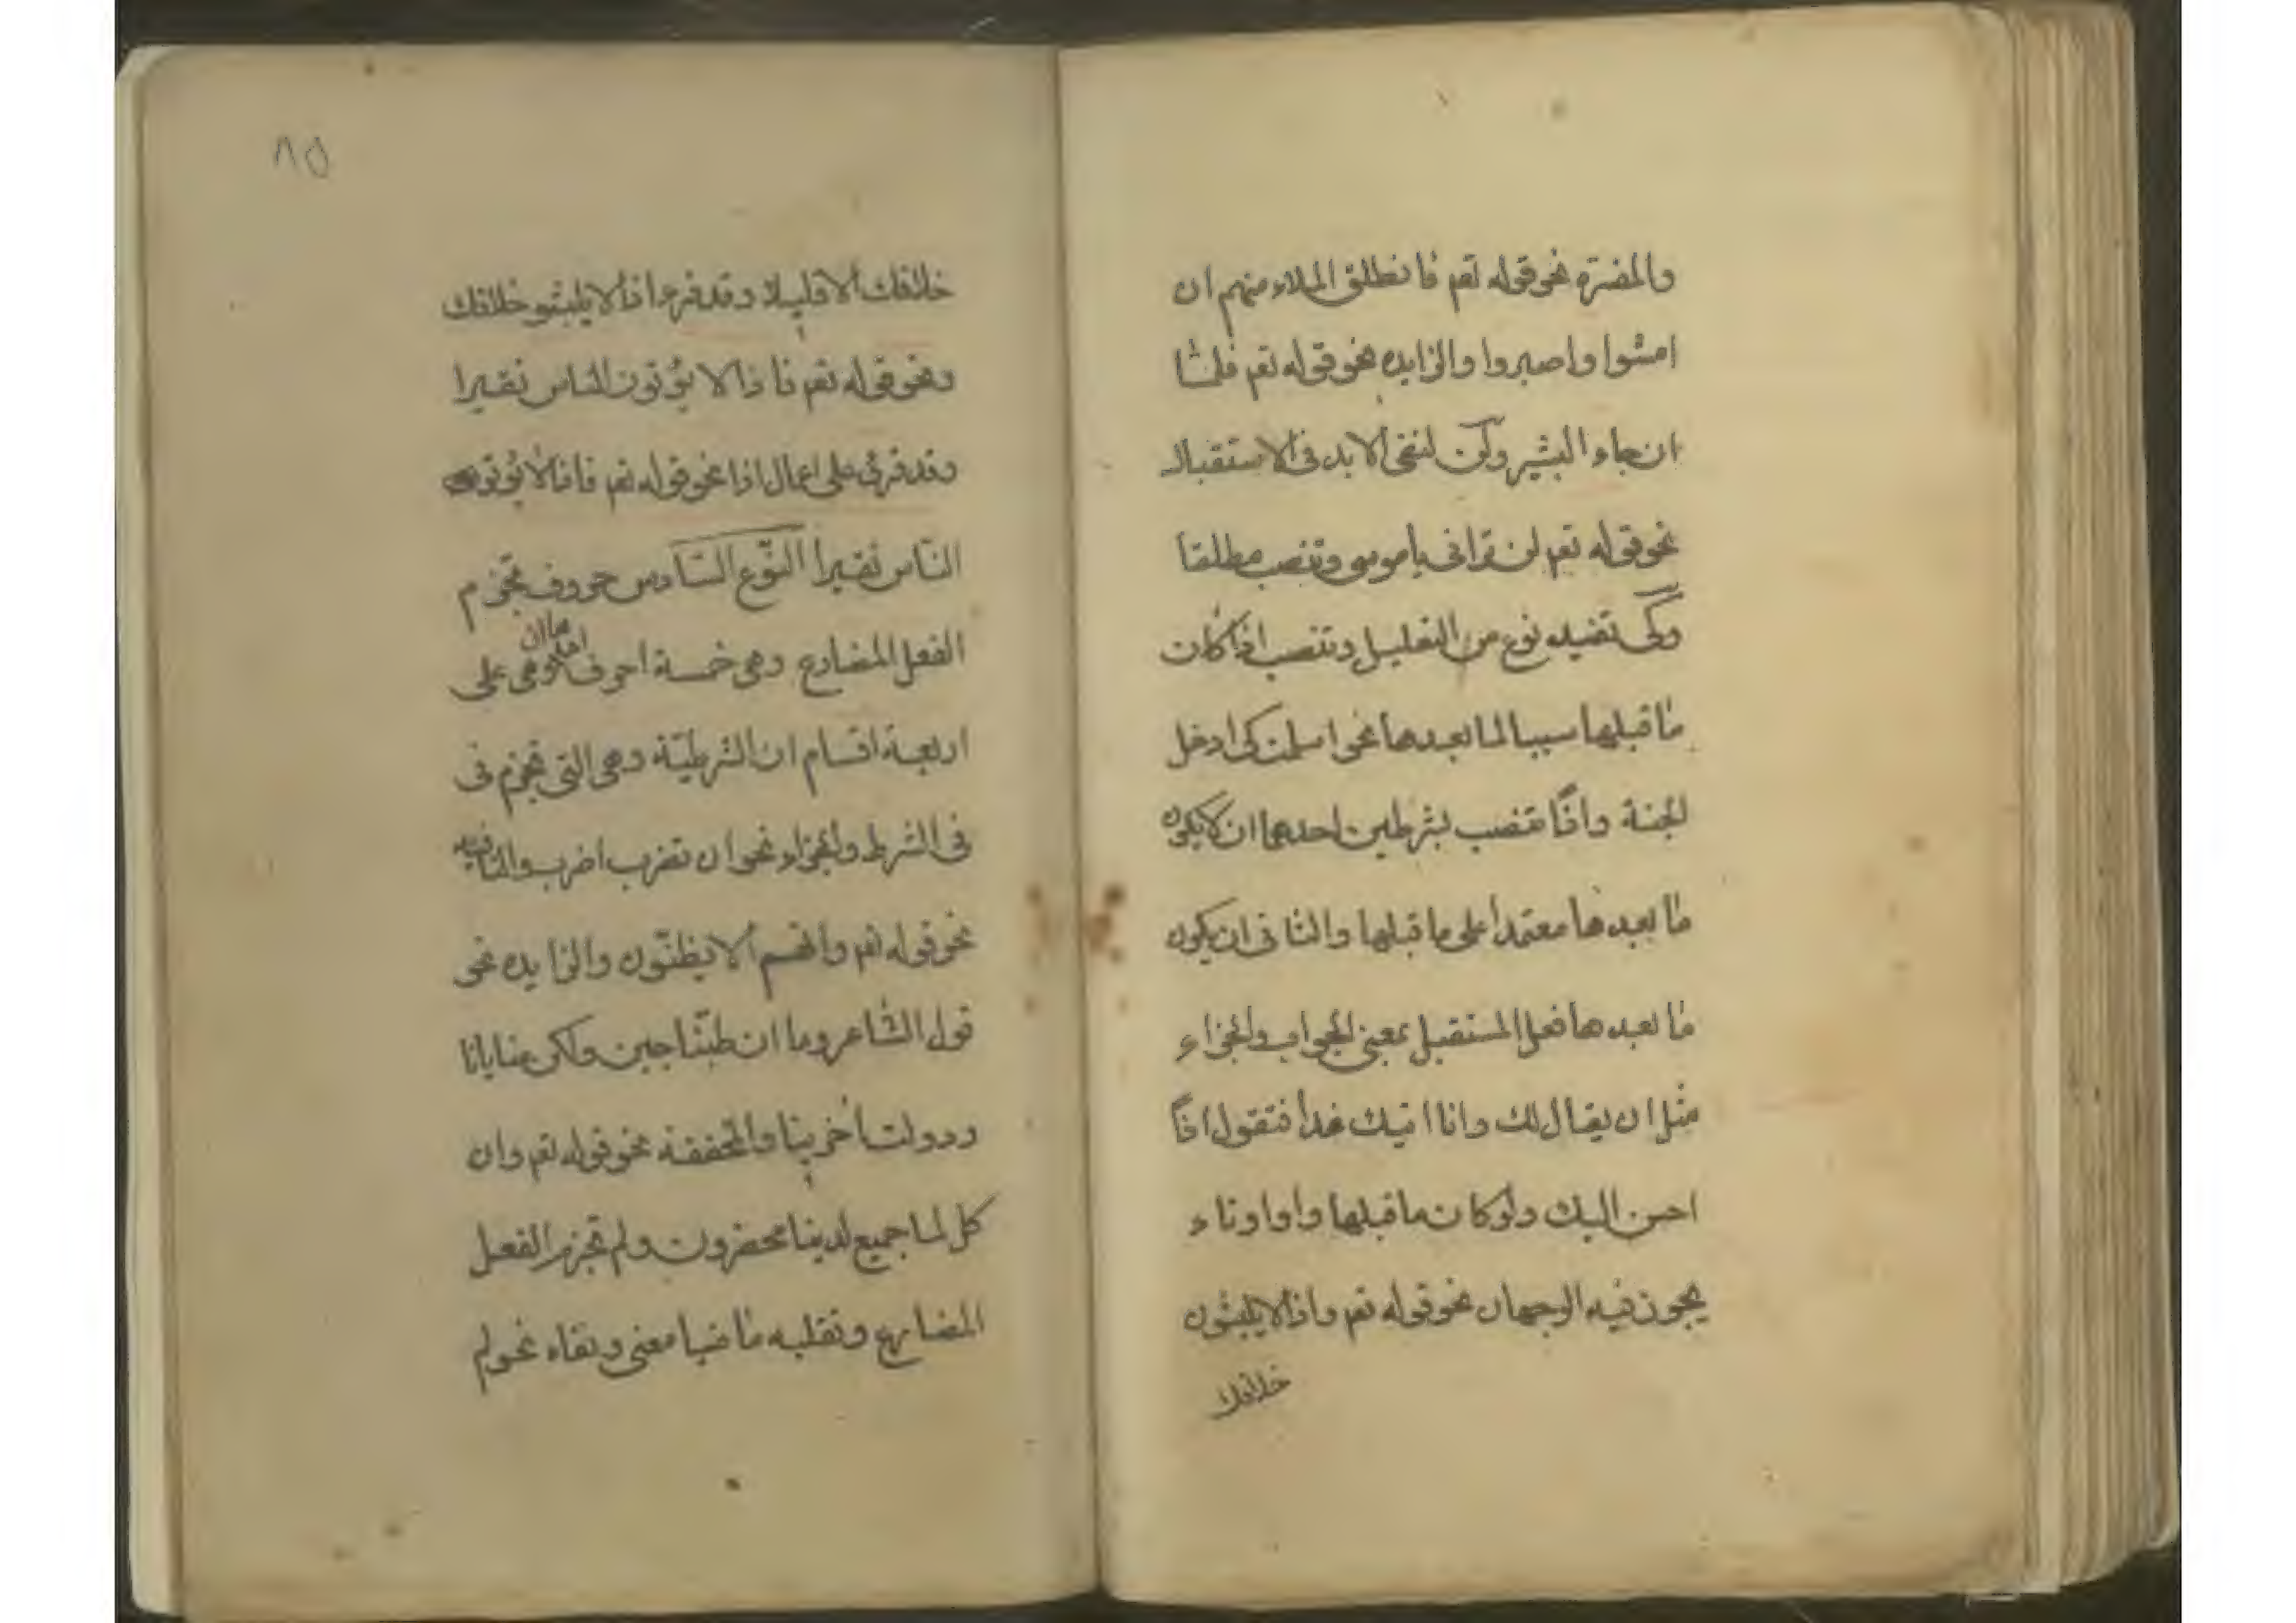 والمفسرة نحو قوله تعم فانطلق الملاء منهم ان
امشوا واصبروا والزايده نحو قوله تعم فلمّا
ان جاء البشير ولن لنفي الابد في الاستقبال
نحو قوله تعم لن تراني يا موسى وتنصب مطلقا
وكي تفيده نوع من التعليل وتنصب اذا كان
ما قبلها سببا لما بعدها نحو اسلمت كي ادخل
الجنة واذًا تنصب بشرطين احدهما ان لا يكون
ما بعدها معتمدا على ما قبلها والثاني ان يكون
ما بعدها فعل المستقبل بمعنى الجواب والجزاء
مثل ان يقال لك وانا اتيك غدا فتقول اذًا
احسن اليك ولو كان ما قبلها واوا وتاء
يجوز فيه الوجهان نحو قوله تعم واذا لا يلبثون
خلافك
٨٥
خلافك الا قليلا وقد قرء اذا لا يلبثو خلافك
ونحو قوله تعم فاذا لا يؤتون الناس نقيرا
وقد قرئ على اعمال اذا نحو قوله تعم فاذا لا يؤتوا
الناس نقيرا النّوع السّادس حروف تجزم
الفعل المضارع وهي خمسة احرف وهي على
اربعة اقسام ان الشرطيّة وهي التي تجزم في
في الشرط والجزاء نحو ان تضرب اضرب والنافيه
نحو قوله تعم وانهم الا يظنّون والزايده نحو
قول الشاعر وما ان طبّنا جبن ولكن منايانا
ودولت اخرينا والمخففة نحو قوله تعم وان
كل لما جميع لدينا محضرون ولم تجزم الفعل
المضارع وتقلبه ماضيا معنى ونفاه نحو لم